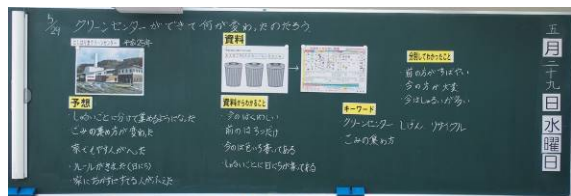 5/29 クリーンセンターができて何が変わったのだろう
平成25年
予想
・しゅるいごとに分けて集めるようになった
ごみの集め方が変わった
家でもやす人がへった
・ルールがきまった(日にち)
資料
資料からわかること
・今のはくわしい
前のは3つだけ
今のは色いろ書いてある
・しゅるいごとに日にちが書いてある
キーワード
クリーンセンター しげん リサイクル
ごみの集め方
分別してわかったこと
今の方が大変
今はしゅるいが多い
五月二十九日水曜日